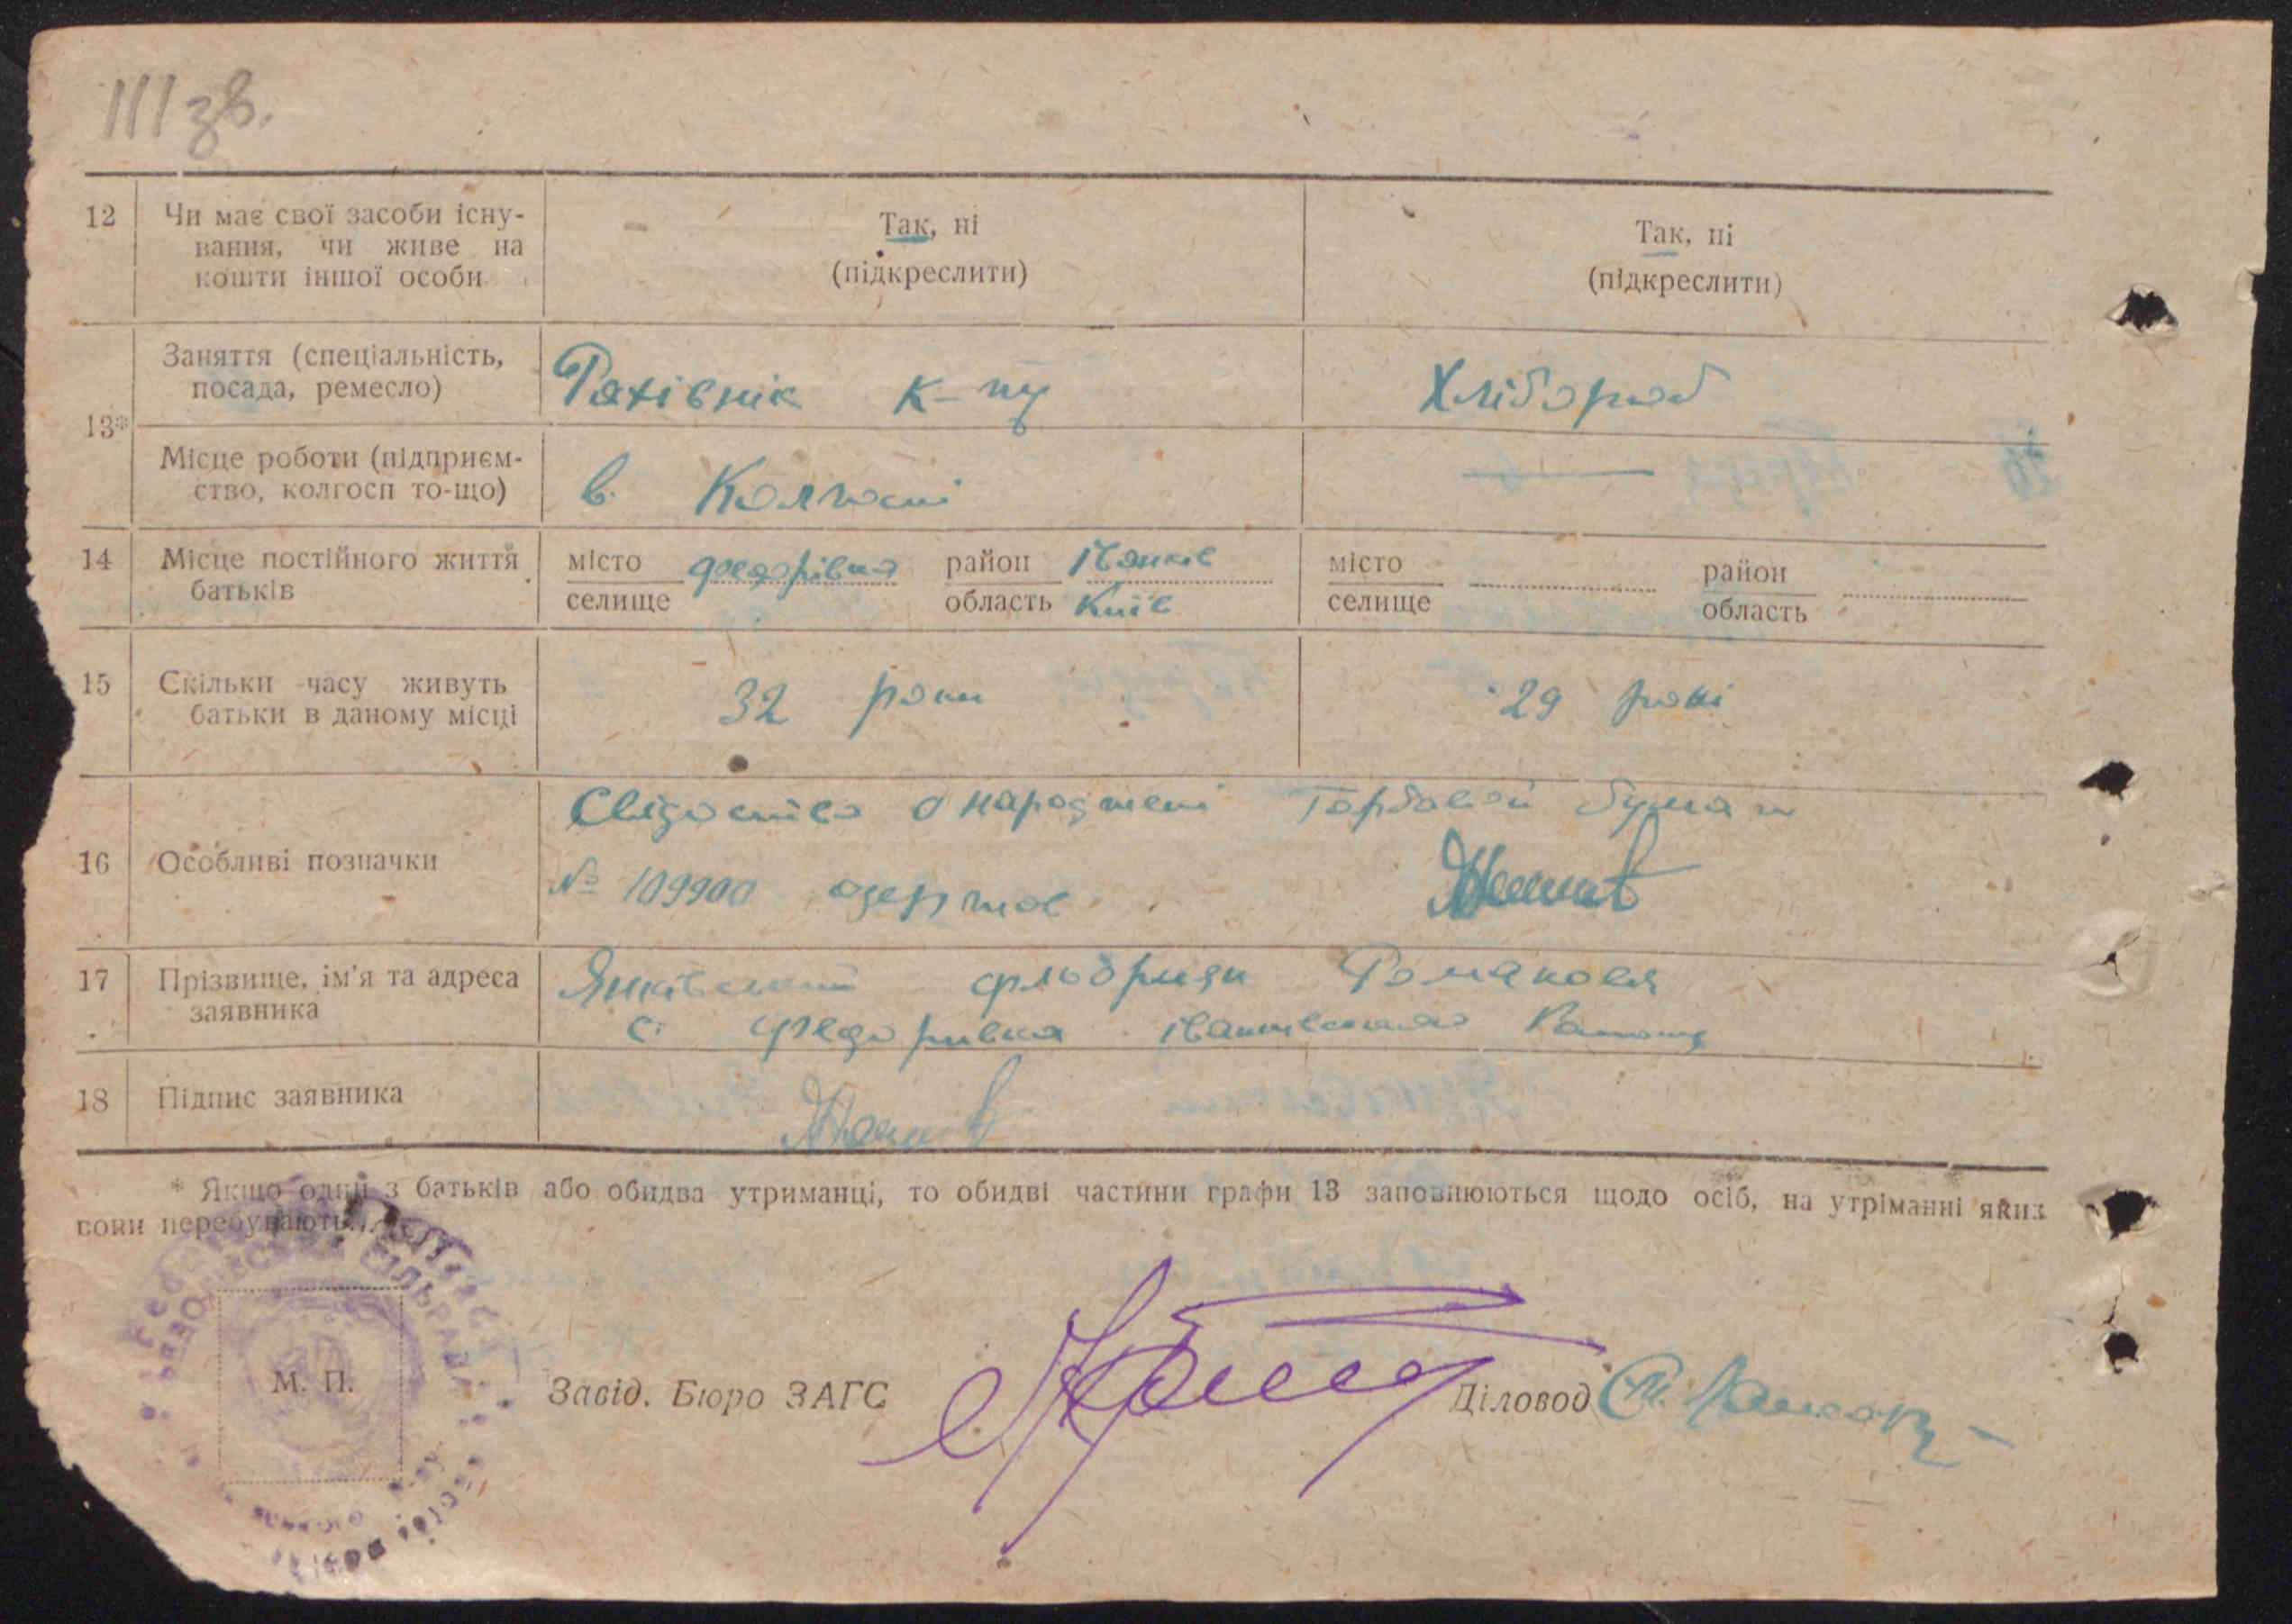 111 зв.
12 Чи має свої засоби існу-
вання, чи живе на
кошти іншої особи
Так, ні
(підкреслити)
Так, ні
(підкреслити)
13*
Заняття (спеціальність,
посада, ремесло)
Рахівнік к-пу
Хлібороб
Місце роботи (підприєм-
ство, колгосп то-що)
в Колгоспі
14 Місце постійного життя
батьків
місто
селище
Федорівка
район Іванків
область Київ
місто
селище
район
область
15 Скільки часу живуть
батьки в даному місці
32 роки
29 рокі
16 Особливі позначки
Свідоство о народжені Гербовой бумаги
№ 109900 одержав
17 Прізвище, ім'я та адреса
заявника
Янківський Романович
с Федорівка
18 Підпис заявника
* Якщо один з батьків або обидва утриманці, то обидві частини графи 13 заповнюються щодо осіб, на утріманні яких
вони перебувають.
М. П.
Завід. Бюро ЗАГС
Діловод